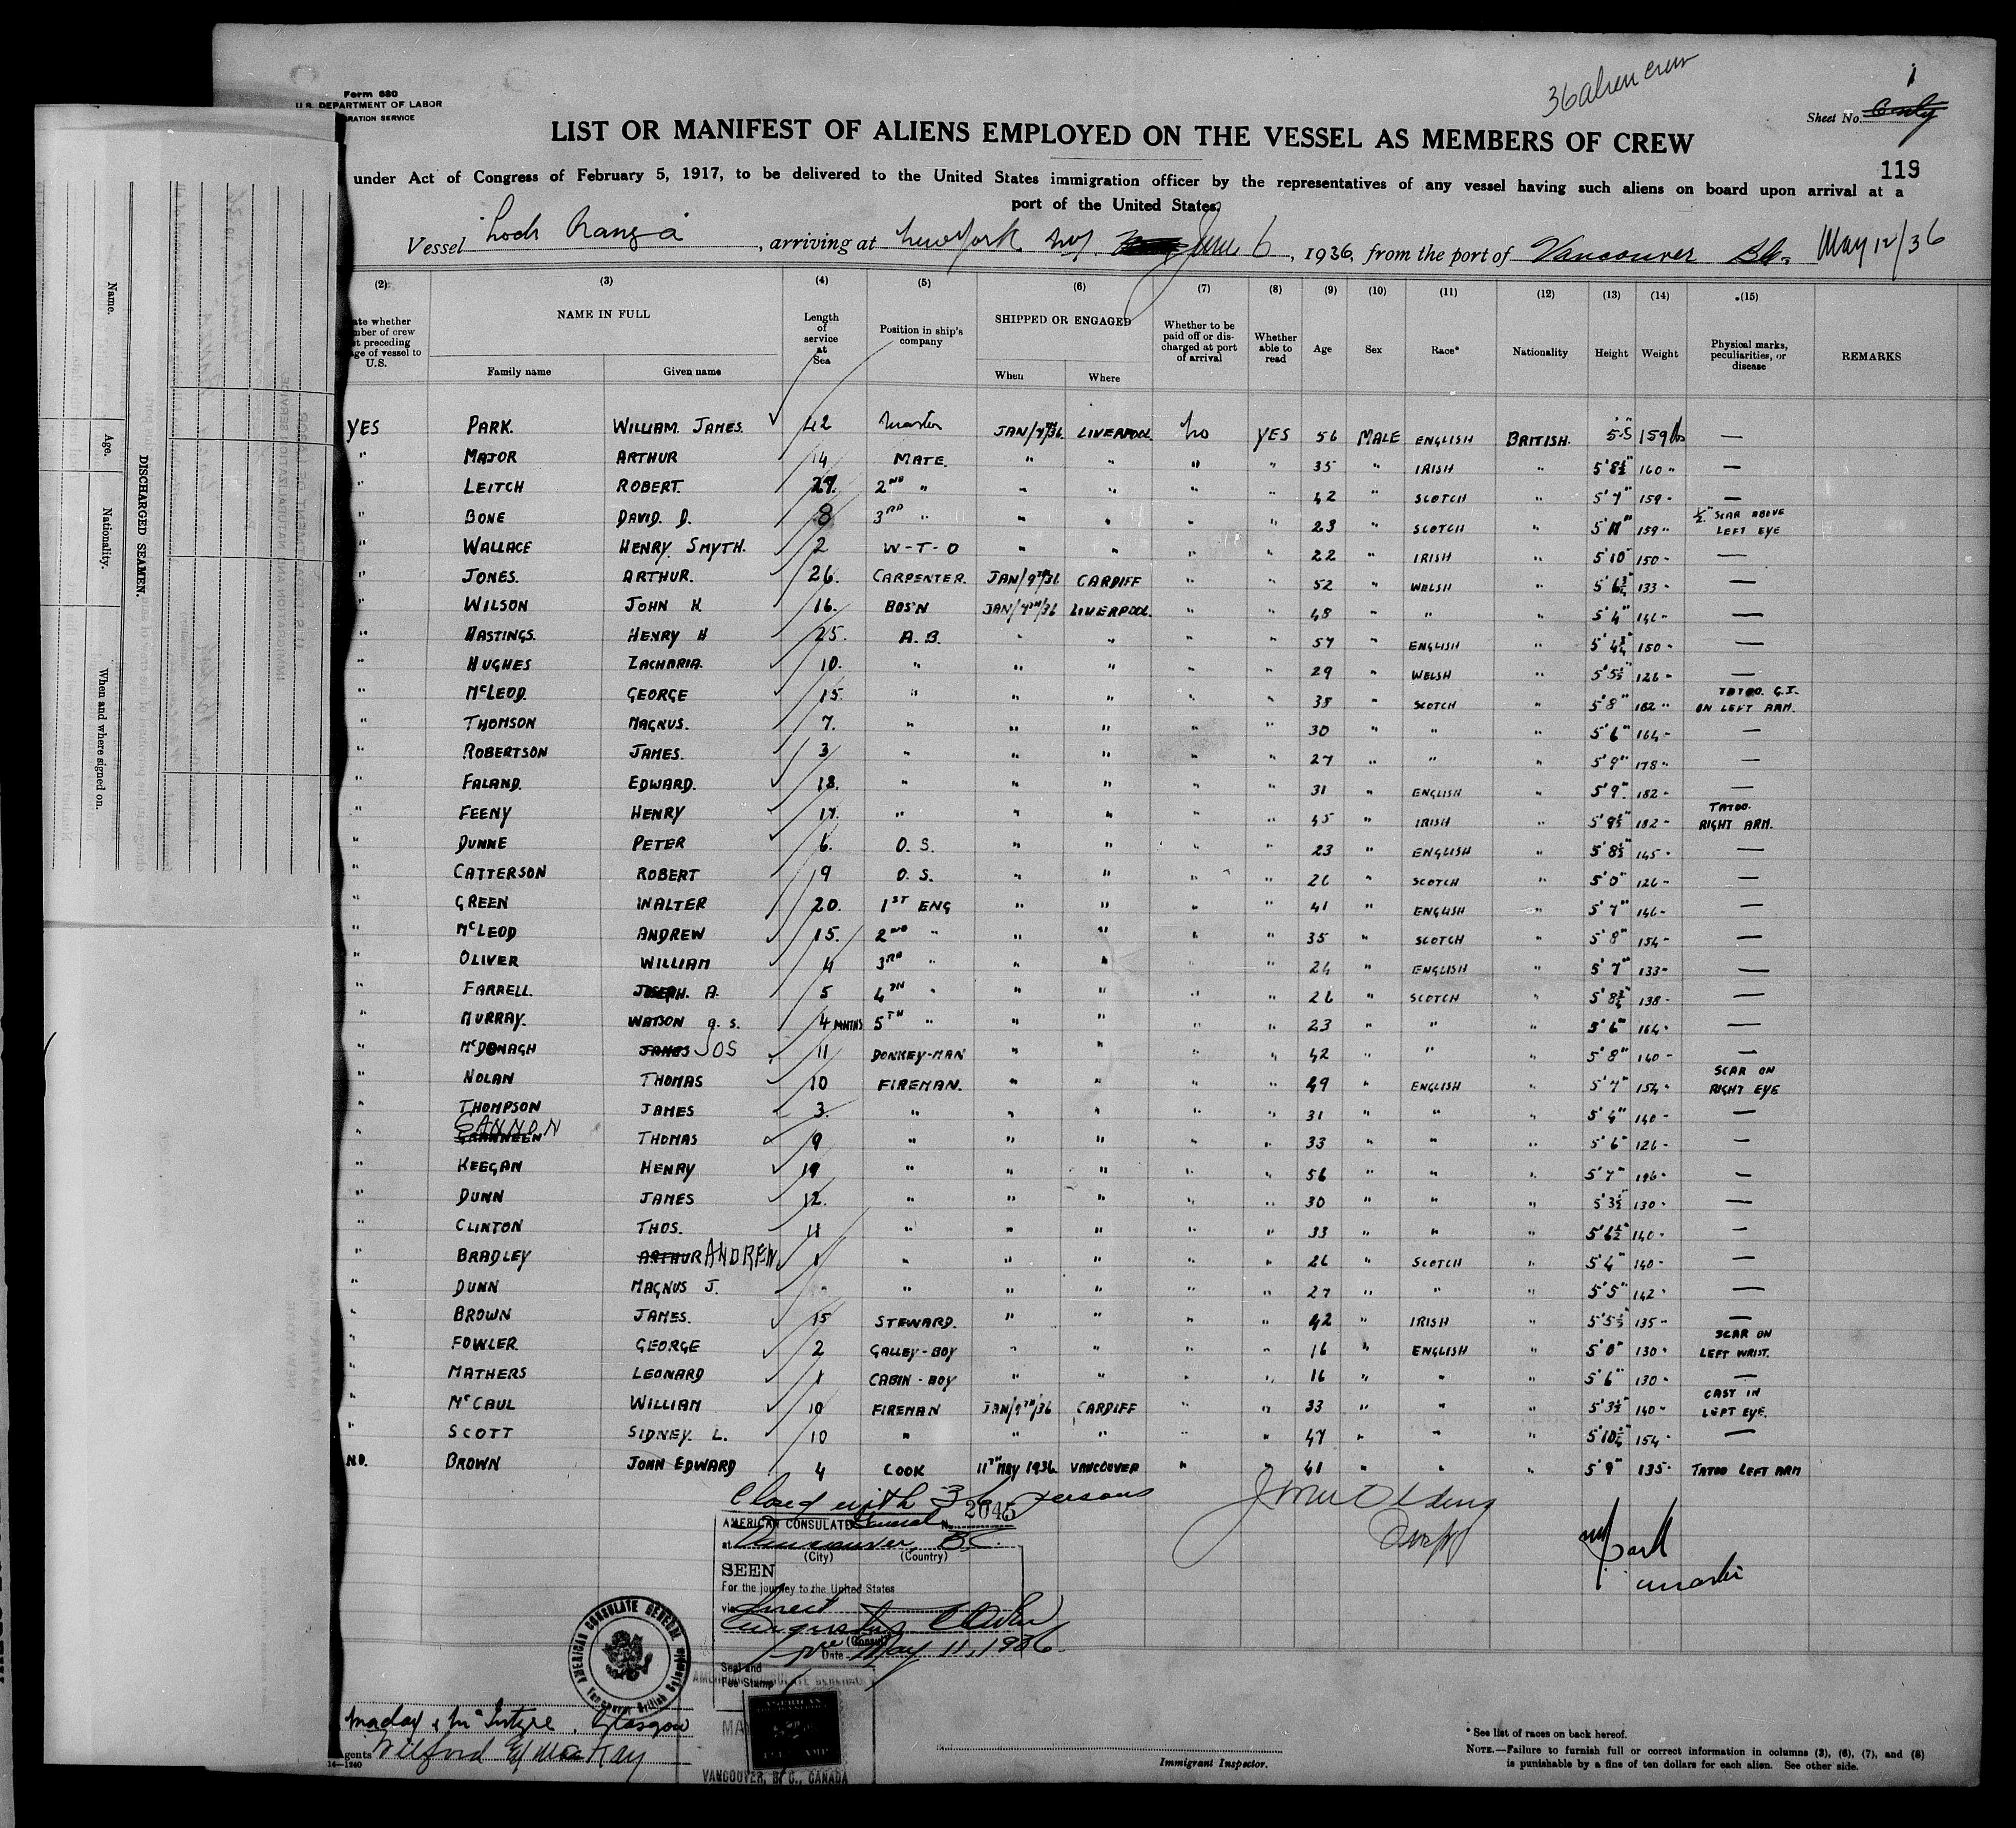 36 alien crew
Form 680
U.S. DEPARTMENT OF LABOR
RATION SERVICE
1
Sheet No. Only
LIST OR MANIFEST OF ALIENS EMPLOYED ON THE VESSEL AS MEMBERS OF CREW
119
under Act of Congress of February 5, 1917, to be delivered to the United States immigration officer by the representatives of any vessel having such aliens on board upon arrival at a
port of the United States
Vessel Loch Ranza, arriving at New York N.Y. June 6, 1936, from the port of Vancouver B.C. May 12/36
(2) (3) (4) (5) (6) (7) (8) (9) (10) (11) (12) (13) (14) (15)
ate whether mber of crew t preceding age of vessel to U.S.
NAME IN FULL
Family name Given name
Length of service at Sea
Position in ship's company
SHIPPED OR ENGAGED
When Where
Whether to be paid off or discharged at port of arrival
Whether able to read
Age Sex Race* Nationality Height Weight
Physical marks, peculiarities, or disease
REMARKS
YES PARK. WILLIAM JAMES. 42 Master JAN/7TH/36 LIVERPOOL. No YES 56 MALE ENGLISH BRITISH. 5·5 159 lbs —
" MAJOR ARTHUR 14 MATE. " " " " 35 " IRISH " 5'8½" 160 " —
" LEITCH ROBERT. 27. 2ND " " " " " 42 " SCOTCH " 5'7" 159 " —
" BONE DAVID. D. 8 3RD " " " " " 23 " SCOTCH " 5'11" 159 " ½" SCAR ABOVE LEFT EYE
" WALLACE HENRY SMYTH. 2 W-T-O " " " " 22 " IRISH " 5'10" 150 " —
" JONES. ARTHUR. 26. CARPENTER. JAN/9TH/36 CARDIFF " " 52 " WELSH " 5'6¾" 133 " —
" WILSON JOHN H 16. BOS'N JAN/7TH/36 LIVERPOOL. " " 48 " " " 5'4" 146 " —
" HASTINGS. HENRY H 25. A.B. " " " " 57 " ENGLISH " 5'4¾" 150 " —
" HUGHES ZACHARIA. 10. " " " " " 29 " WELSH " 5'5½" 126 " —
" McLEOD. GEORGE 15. " " " " " 38 " SCOTCH " 5'8" 182 " TATOO. G.I. ON LEFT ARM.
" THOMSON MAGNUS. 7. " " " " " 30 " " " 5'6" 164 " —
" ROBERTSON JAMES. 3 " " " " " 27 " " " 5'9" 178 " —
" FALAND. EDWARD. 18. " " " " " 31 " ENGLISH " 5'9" 182 " —
" FEENY HENRY 17. " " " " " 45 " IRISH " 5'9½" 182 " TATOO. RIGHT ARM.
" DUNNE PETER 6. O.S. " " " " 23 " ENGLISH " 5'8½" 145 " —
" CATTERSON ROBERT 9 O.S. " " " " 26 " SCOTCH " 5'0" 126 " —
" GREEN WALTER 20. 1ST ENG " " " " 41 " ENGLISH " 5'7" 146 " —
" McLEOD ANDREW 15. 2ND " " " " " 35 " SCOTCH " 5'8" 154 " —
" OLIVER WILLIAM 4 3RD " " " " " 24 " ENGLISH " 5'7" 133 " —
" FARRELL. JOSEPH. A. 5 4TH " " " " " 26 " SCOTCH " 5'8¾" 138 " —
" MURRAY. WATSON G. S. 4 MNTHS 5TH " " " " " 23 " " " 5'6" 164 " —
" McDONAGH JAMES JOS 11 DONKEY-MAN " " " " 42 " " " 5'8" 160 " —
" NOLAN THOMAS 10 FIREMAN. " " " " 49 " ENGLISH " 5'7" 154 " SCAR ON RIGHT EYE
" THOMPSON JAMES 3. " " " " " 31 " " " 5'4" 140 " —
" GANNON THOMAS 9 " " " " " 33 " " " 5'6" 126 " —
" KEEGAN HENRY 19 " " " " " 56 " " " 5'7" 196 " —
" DUNN JAMES 12. " " " " " 30 " " " 5'3½" 130 " —
" CLINTON THOS. 11 " " " " " 33 " " " 5'6½" 140 " —
" BRADLEY ARTHUR ANDREW 1 " " " " " 26 " SCOTCH " 5'4" 140 " —
" DUNN MAGNUS J. " " " " " " 27 " " " 5'5" 142 " —
" BROWN JAMES. 15 STEWARD. " " " " 42 " IRISH " 5'5½" 135 " —
" FOWLER GEORGE 2 GALLEY-BOY " " " " 16 " ENGLISH " 5'0" 130 " SCAR ON LEFT WRIST.
" MATHERS LEONARD 1 CABIN-BOY " " " " 16 " " " 5'6" 130 " —
" McCAUL WILLIAM 10 FIREMAN JAN/9TH/36 CARDIFF " " 33 " " " 5'3½" 140 " CAST IN LEFT EYE.
" SCOTT SIDNEY. L. 10 " " " " " 47 " " " 5'10¾" 154 " —
NO. BROWN JOHN EDWARD 4 COOK 11TH MAY 1936 VANCOUVER " " 41 " " " 5'9" 135 " TATOO LEFT ARM
Closed with 36 persons
AMERICAN CONSULATE General No. 2045
at Vancouver, B.C.
(City) (Country)
SEEN
For the journey to the United States
via direct
(Consul)
Date May 11, 1936.
Seal and
Fee Stamp
AMERICAN CONSULATE GENERAL
VANCOUVER, B. C., CANADA
AMERICAN CONSULATE GENERAL
Vancouver British Columbia
W J Park
Master
McIntyre, Glasgow
gents Wilford McKay
14—1240
Immigrant Inspector.
* See list of races on back hereof.
NOTE.—Failure to furnish full or correct information in columns (3), (6), (7), and (8)
is punishable by a fine of ten dollars for each alien. See other side.
DISCHARGED SEAMEN.
Name.
Age.
Nationality.
When and where signed on.